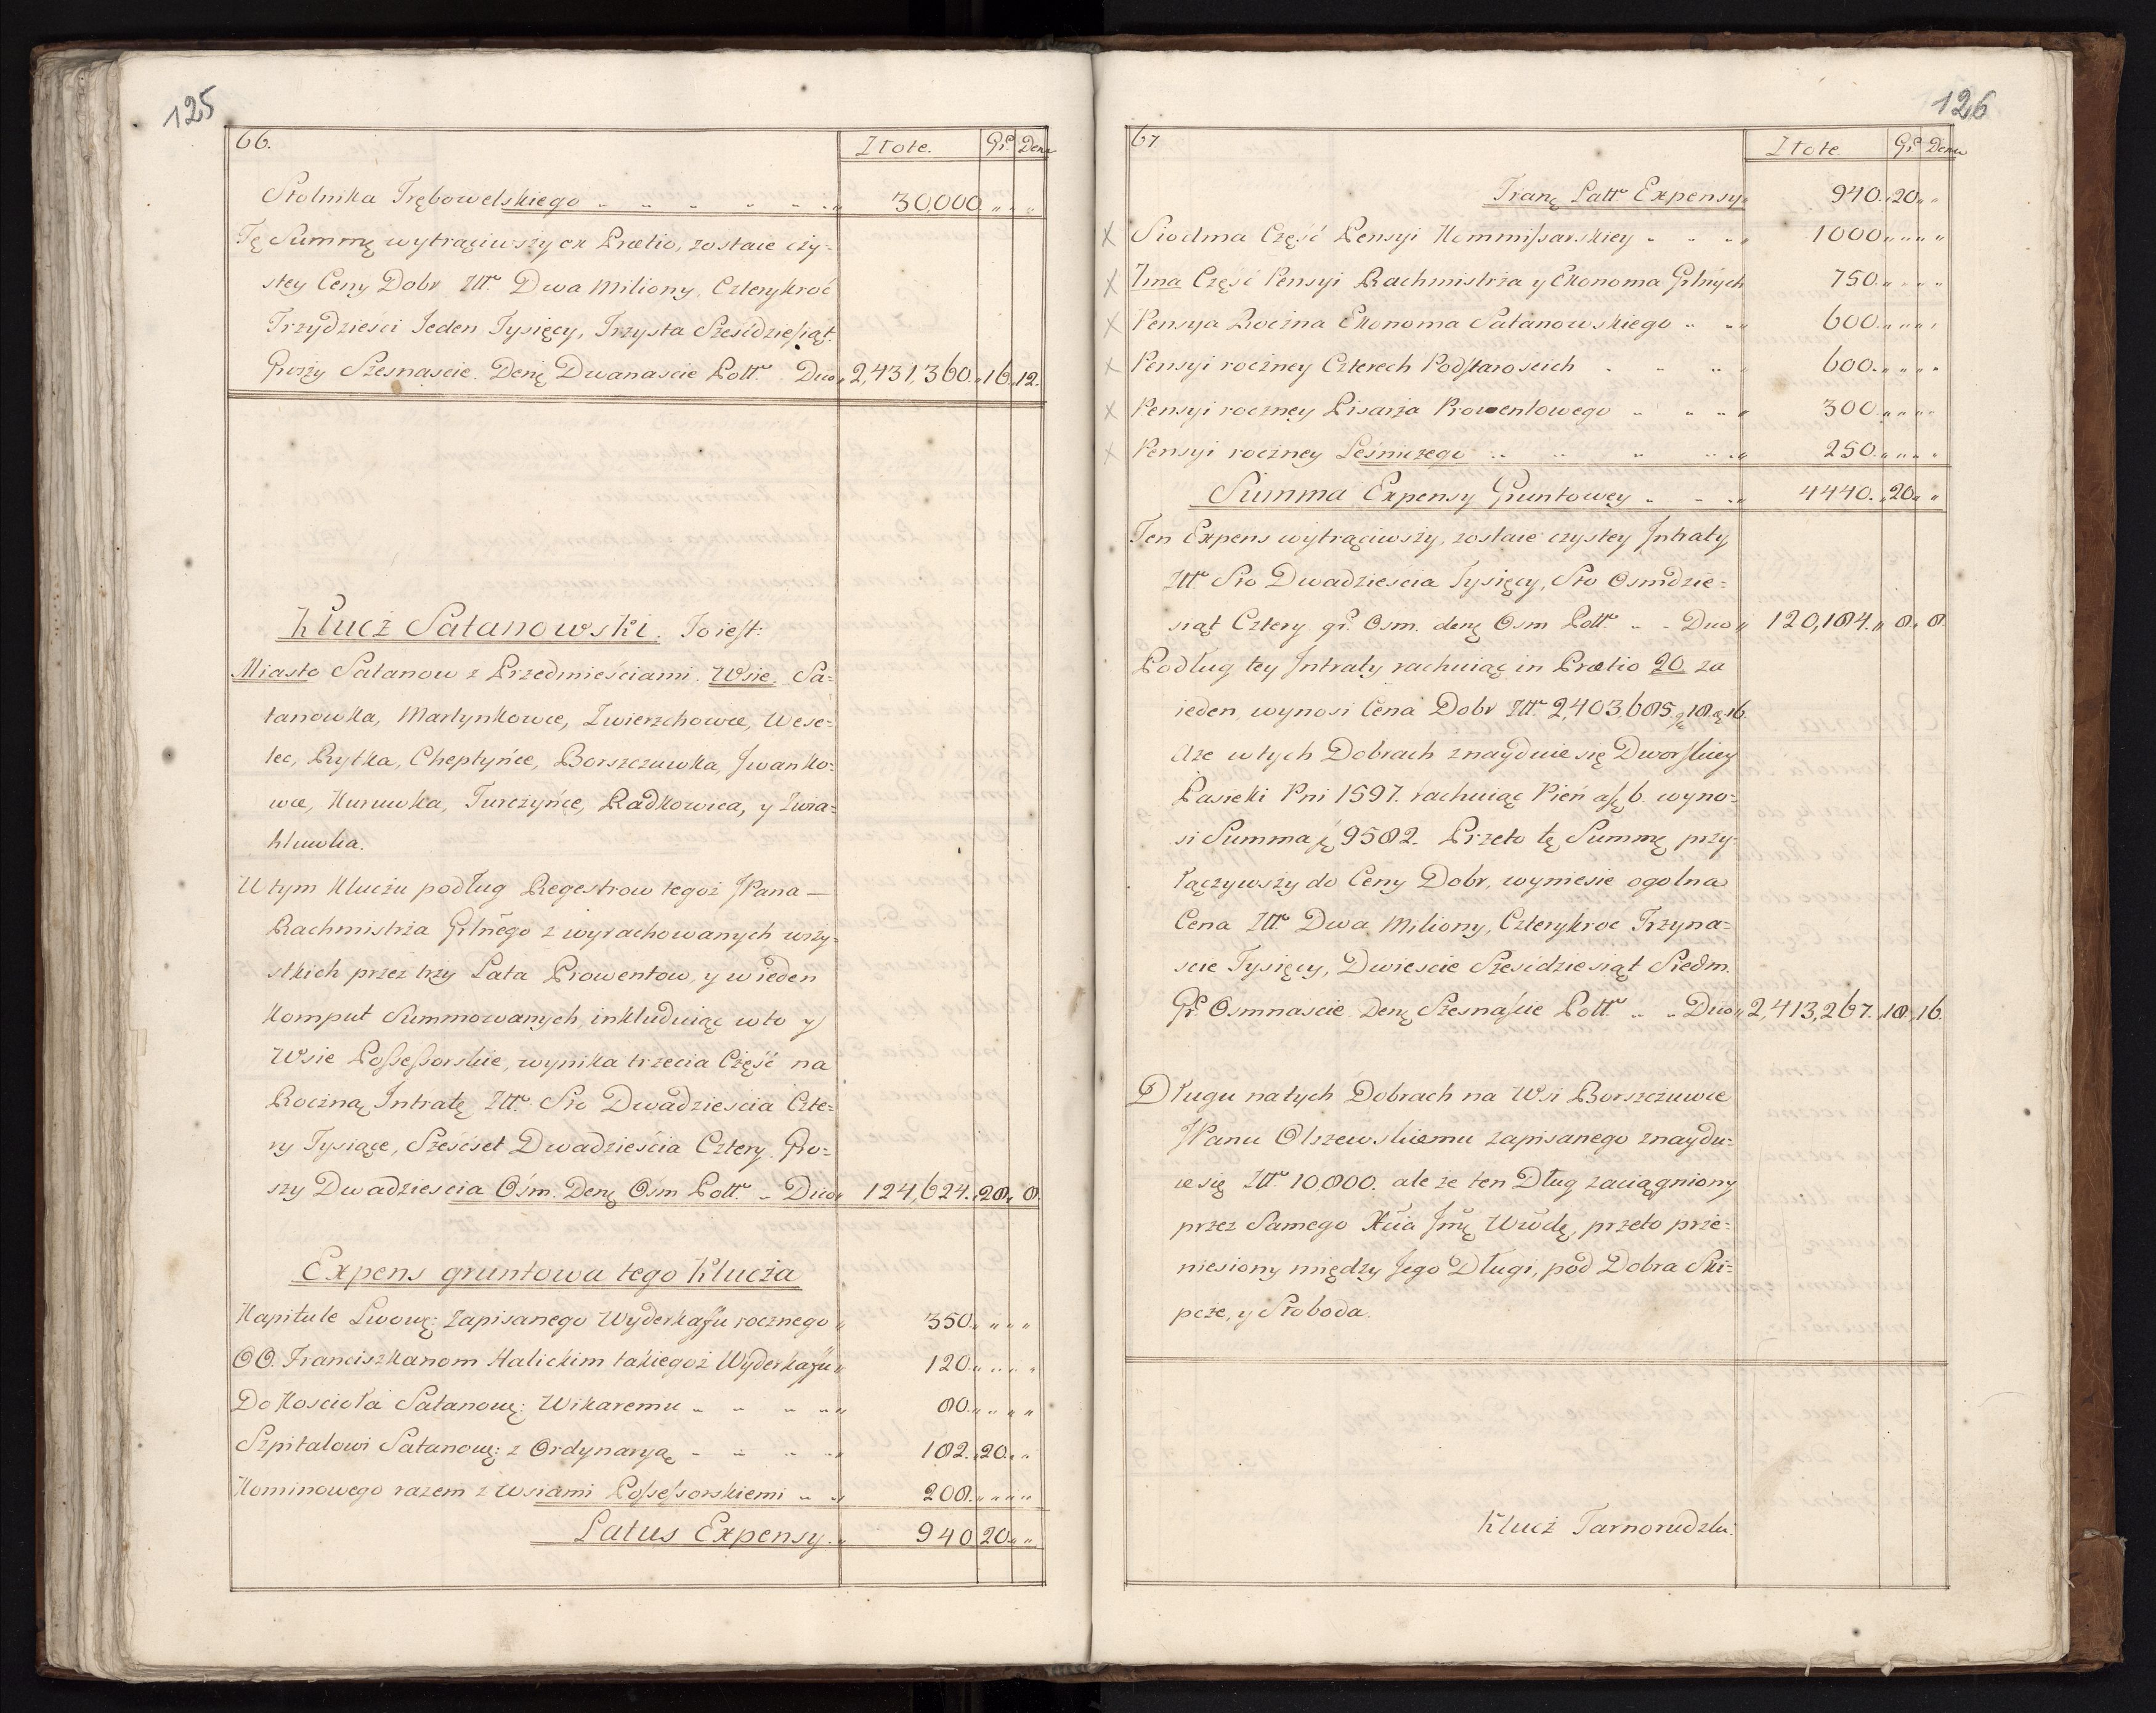 125
66.
Złote. Gr. Dena
Stolnika Trębowelskiego „ „ „ „ „ „ 30,000. „ „
Tę Summę wytrąciwszy ex Prætio, zostaie czy=
stey Ceny Dobr Złł. Dwa Miliony, Czterykroć
Trzydzieści Ieden Tysięcy, Trzysta Sześćdziesiąt.
Groszy Szesnascie. Denę Dwanascie Poll. Dico „ 2,431,360. „ 16. „ 12.
Klucz Satanowski. To iest:
Miasto Satanow z Przedmieściami. Wsie. Sa=
tanowka, Martynkowce, Zwierzchowce, Wese=
lec, Rytka, Cheptyńce, Borszczuwka, Jwanko=
wce, Kuruwka, Turczyńce, Radkowica, y Zwia=
hluwka.
W tym Kluczu podług Regestrow tegoż JPana —
Rachmistrza Grlnego z wyrachowanych wszy=
stkich przez trzy Lata Prowentow, y w ieden
Komput Summowanych, inkluduiąc w to y
Wsie Possessorskie, wynika trzecia Część na
Roczną Jntratę Złł. Sto Dwadziescia Czte=
ry Tysiące, Sześćset Dwadzieścia Cztery. Gro=
szy Dwadziescia Ośm. Denę Osm Poll. „ Dico „ 124,624. „ 28. „ 8.
Expens gruntowa tego Klucza
Kapitule Lwowę: Zapisanego Wyderkaffu rocznego „ 350. „ „ „
OO. Franciszkanom Halickim takiegoż Wyderkaffu „ 120. „ „ „
Do Koscioła Satanowę: Wikaremu „ „ „ „ 80. „ „ „
Szpitalowi Satanowę: z Ordynaryą „ „ „ „ 182. „ 20. „ „
Kominowego razem z Wsiami Possessorskiemi „ „ 208. „ „ „
Latus Expensy „ 940 20. „ „
126
67
Złote Gr. Dena
Tranę Latt Expensy „ 940. „ 20. „ „
x Siodma Część Pensyi Kommissarskiey „ „ „ 1000 „ „ „
x 7ma Część Pensyi Rachmistrza y Ekonoma Grlnych 750. „ „ „
x Pensya Roczna Ekonoma Satanowskiego „ „ 600. „ „ „
x Pensyi roczney Czterech Podstaroscich „ „ „ 600. „ „ „
x Pensyi roczney Pisarza Prowentowego „ „ „ 300. „ „ „
x Pensyi roczney Leśniczego „ „ „ „ 250. „ „ „
Summa Expensy Gruntowey „ „ „ 4440. „ 20. „ „
Ten Expens wytrąciwszy, zostaie czystey Jntraty
Złł. Sto Dwadziescia Tysięcy, Sto Osmdzie=
siąt Cztery gr. Osm. denę Osm Poll. „ „ Dico „ 120,184. „ 8. „ 8.
Podług tey Jntraty rachuiąc in Prætio 20 za
ieden, wynosi Cena Dobr Złł. 2,403,685. g 18. ą 16.
A że w tych Dobrach znayduie się Dworskiey
Pasieki Pni 1597. rachuiąc Pień a fę 6. wyno=
si Summa fę 9582. Przeto tę Summę przy=
łączywszy do Ceny Dobr, wyniesie ogolna
Cena Złł. Dwa Miliony, Czterykroc Trzyna=
scie Tysięcy, Dwiescie Sześcdziesiąt Siedm.
Gr. Osmnascie. Denę Szesnascie Poll. „ „ Dico „ 2,413,267. „ 18. „ 16.
Długu na tych Dobrach na Wsi Borszczuwce
JPanu Olszewskiemu zapisanego znaydu=
ie się Złł. 10,800. ale że ten Dług zaciągniony
przez Samego Xcia Jmę Wwdę, przeto prze=
niesiony między Jego Długi, pod Dobra Ski=
pcze, y Słoboda.
Klucz Tarnorudzki: